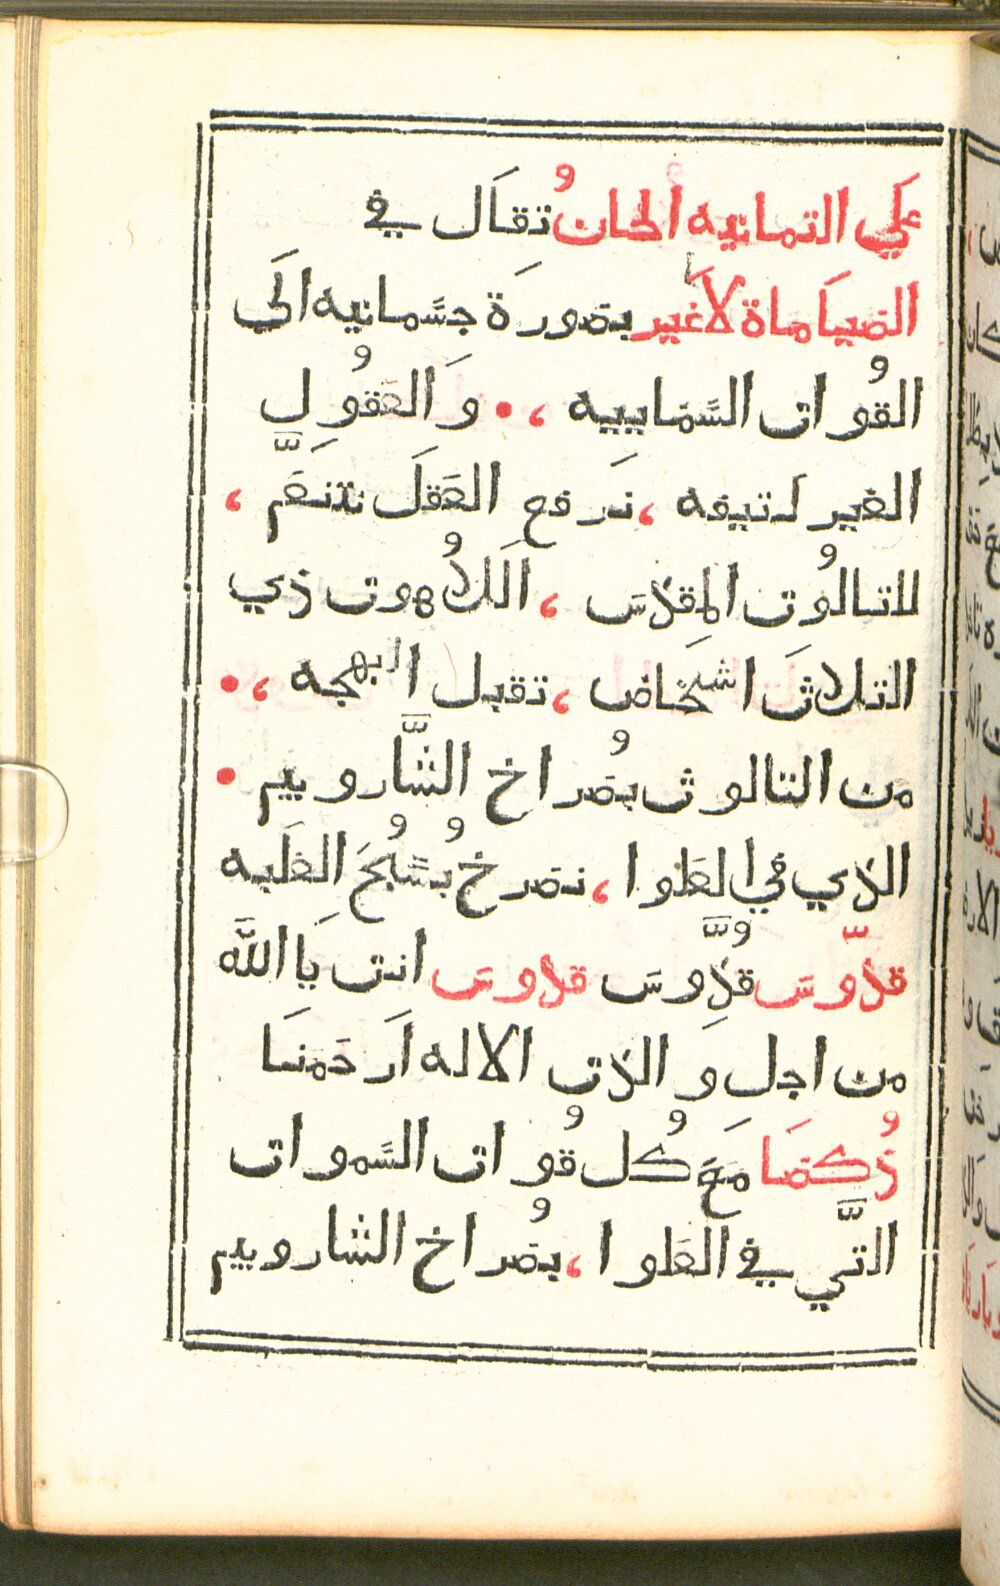 علَي التمانيه اُلحانُ تقَال في
الصيَامَاة لاَغَير بصورَة جسَّمانيه الَي
القُوات السَّمَاييه ،• وَ العَقُولِ
الغير لَتيفه ، نَرفع العَقلَ نتنعَّم ،
للتالُوت المقدَسَ ، اللَاُهوت ذي
التلاتَ اشخَاص ، تقبل البهجه ،•
مَن التالوث بصُراخ الشَّاروبيم •
الذي في العَلوا ، نصَرخ بُسَّبُحَ الغلَبه
قدّوسَ قدُّوسَ قدوسَ انت يَا اللَّه
من اجل وَالدَت الالاه اَرحَمنَا
ذُكصَا مَعَ كُل قُوات السَّموات
التَّي في العَلوا ، بصُراخ الشاروبيم